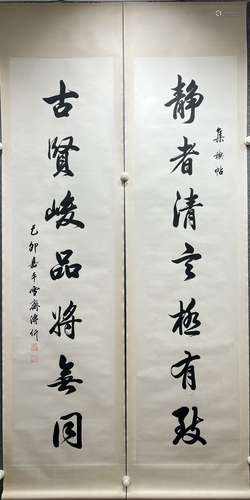 集禊帖
静者清言極有致
古賢峻品將無同
己卯嘉平雪齋溥伒